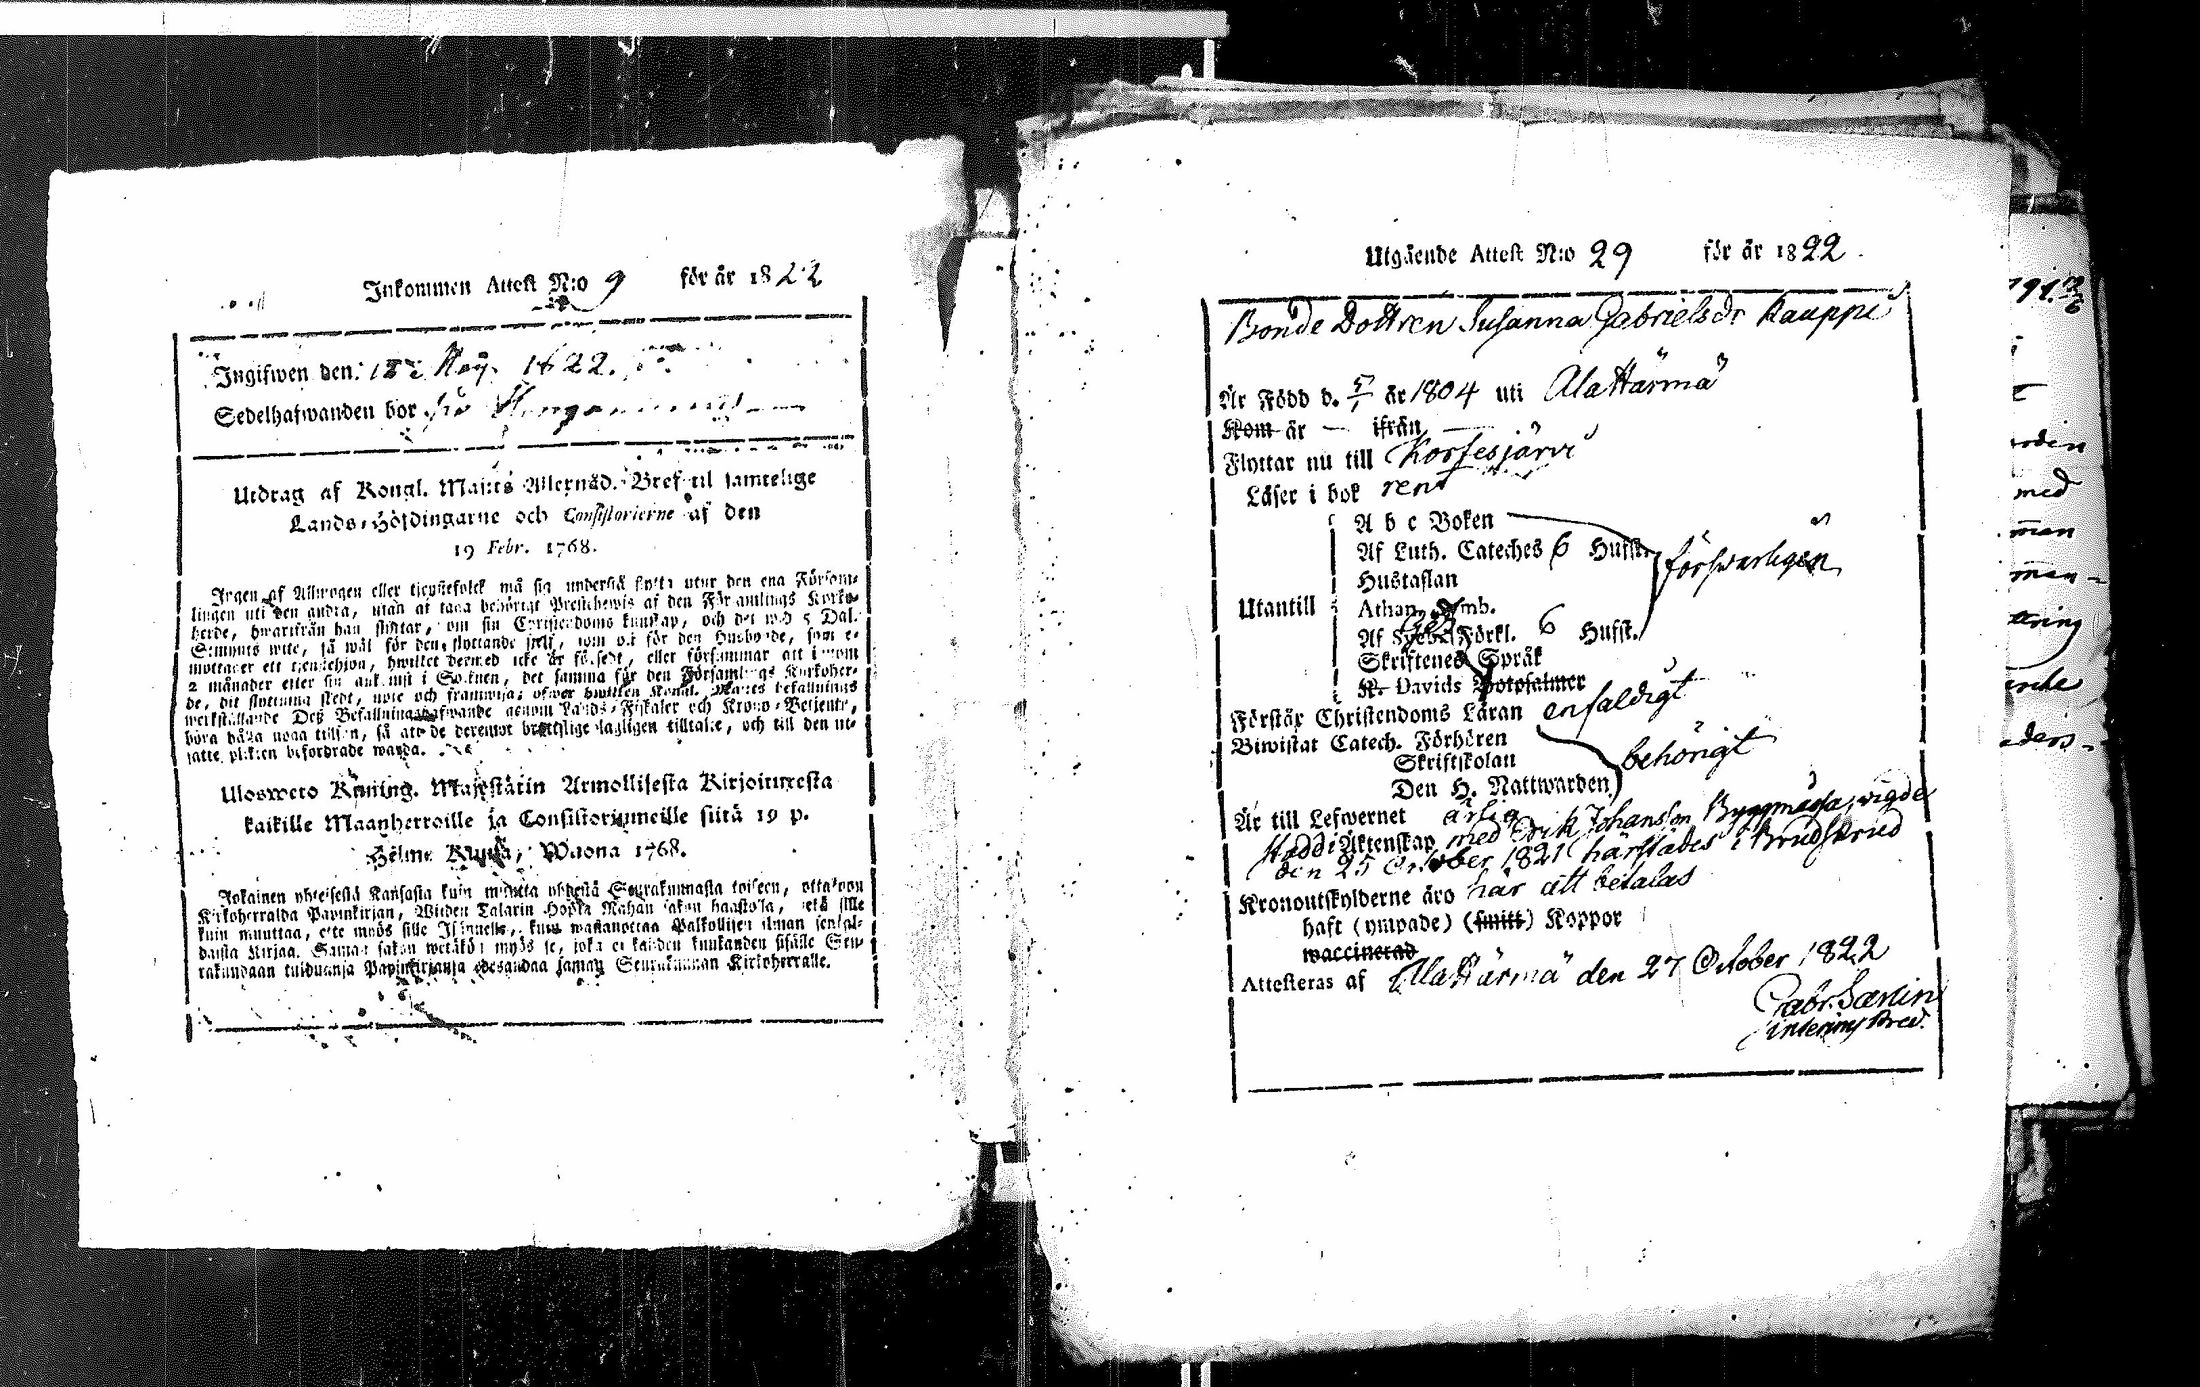 Inkommen Attest N:o 9 för år 1822
Ingifwen den: May 1822.
Sedelhafwanden bor
Utdrag af Kongl. Maj:ts Allernåd. Bref til samtelige
Lands-Höfdingarne och Consistorierne af den
19 Febr. 1768.
Ingen af Allmogen eller tjenstefolck må sig understå flytta utur den ena Försam-
lingen uti den andra, utan at taga behörigt Prestebewis af den Församlings Kyrko-
herde, hwarifrån han flyttar, om sin Christendoms kunskap, och det wid 5 Dal.
Silfmynts wite, så wäl för den flyttande sielf, som ock för den Husbonde, som e-
mottager ett tjenstehjon, hwilket dermed icke är försedt, eller försummar att inom
2 månader efter sin ankomst i Socknen, det samma för den Församlings Kyrkoher-
de, dit flyttning skedt, upte och framwisa; öfwer hwilken Kongl. Maj:ts befallnings
werkställande Deß Befallningshafwande genom Lands-Fiskaler och Krono-Betjente,
böra hålla noga tillsyn, så att de deremot brottslige lagligen tilltalte, och till den ut-
satte plickten befordrade warda.
Uloswето Kuning. Majestätin Armollisesta Kirjoituxesta
kaikille Maanherroille ja Consistoriumeille siitä 19 p.
Helme Kuusa, Wuona 1768.
Jokainen yhteisestä Kansasta kuin muutta yhdestä Seurakunnasta toiseen, ottakoon
Kirkoherralda Papinkirjan, Wiiden Talarin Hopia Rahan sakon haastolla, sekä sille
kuin muuttaa, ette myös sille Isännelle, kuin wastanottaa Palkollisen ilman senkal-
daista Kirjaa. Saman sakon wetäkön myös se, joka ei kahden kuukauden sisälle Seu-
rakundaan tulduansa Papinkirjansa edesandaa saman Seurakunnan Kirkoherralle.
Utgående Attest N:o 29 för år 1822.
Bonde Dottren Susanna Gabrielsdr Kauppi
Är Född d. 5/1 år 1804 uti AlaHärmä
Kom år — ifrån —
Flyttar nu till Kortesjärvi
Läser i bok rent
A b c Boken
Af Luth. Cateches 6 Hufst.
Hustaflan
försvarligen
Utantill
Athan. Symb.
Af Svebel. Förkl. 6 Hufst.
Skriftenes Språk
K. Davids Botpsalmer
Förstår Christendoms Läran enfaldigt
Biwistat Catech. Förhören
Skriftskolan
behörigt
Den H. Nattwarden
Är till Lefwernet ärlig
Stadd i Äktenskap med Erik Johansson Byggmästa, vigde
den 25 October 1821 härstädes i Brudskrud
Kronoutskylderne äro här att betalas
haft (ympade) (smitt) Koppor
waccinerad
Attesteras af AlaHärmä den 27 October 1822
Gabr. Sævin
interims Pred.
191.
med